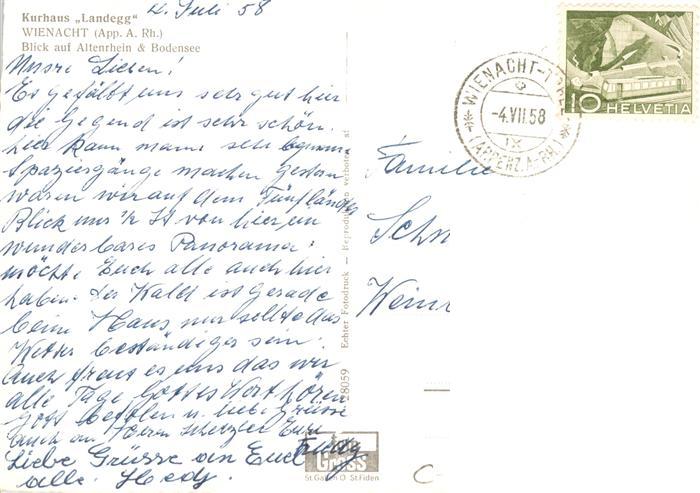 Kurhaus „Landegg"
WIENACHT (App. A. Rh.)
Blick auf Altenrhein & Bodensee
4. Juli 58
Unsre Lieben!
Es gefällt uns sehr gut hier
die Gegend ist sehr schön.
hier kann mann sehr bequeme
Spaziergänge machen gestern
waren wir auf dem Fünfländer
Blick nur ½ St von hier ein
wunderbares Panorama.
möchte Euch alle auch hier
haben. der Wald ist gerade
beim Haus, nur sollte das
Wetter beständiger sein.
Auch freut es uns das wir
alle Tage Gottes Wort hören
Gott befolen u. liebe Grüsse
auch an Herrn Eure
Liebe Grüsse an Euch
alle. Hedy.
28059 Echter Fotodruck — Reproduktion verboten
Gross
St. Gallen O St. Fiden
WIENACHT-
-4.VII.58
IX
(APPENZ.A.-RH.)
10 HELVETIA
Familie
Sch
Wein